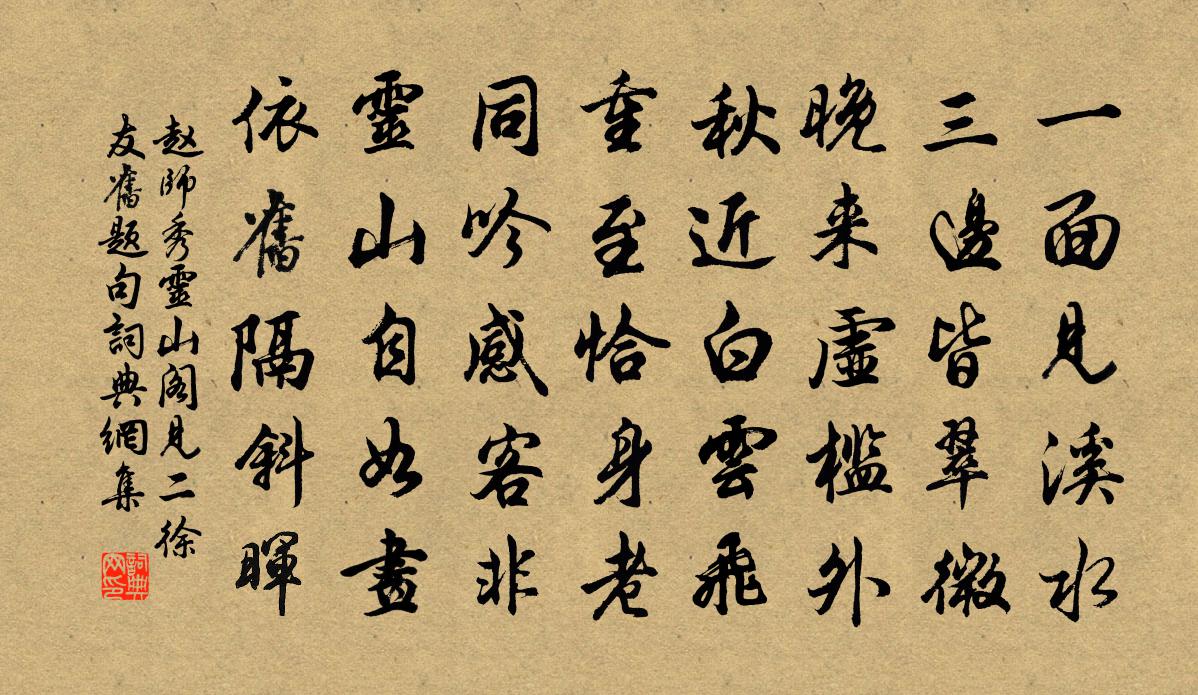 一面見溪水
三邊皆翠微
晚来虛檻外
秋近白雲飛
重至恰身老
同吟感客非
靈山自如畫
依舊隔斜暉
赵師秀靈山阁見二徐
友舊题句詞典網集
詞典
网印